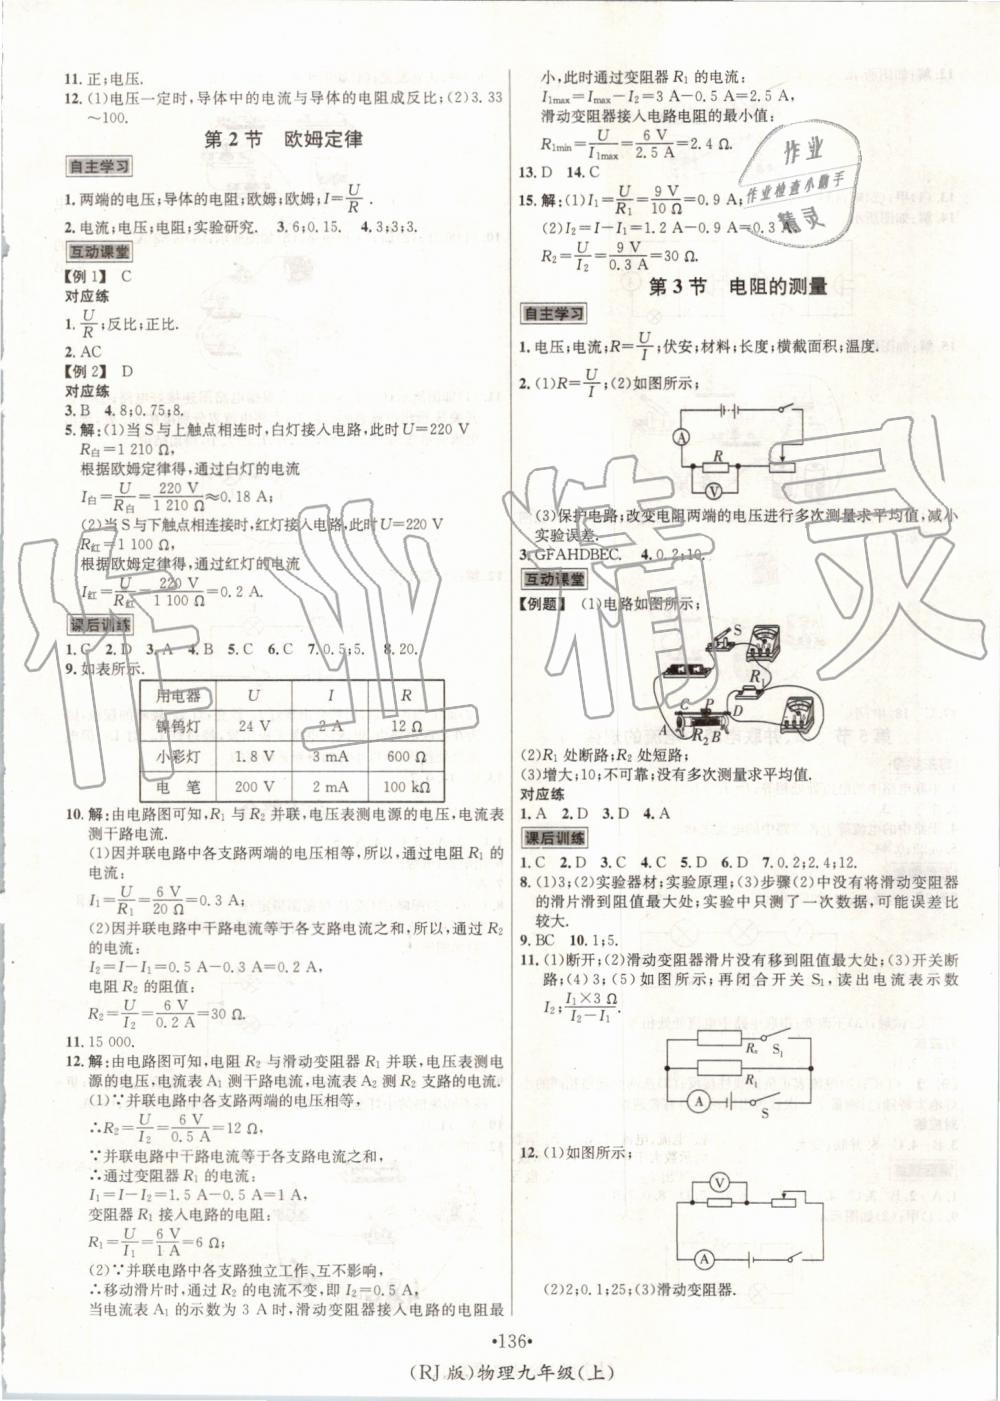 11. 正;电压.
12. (1)电压一定时,导体中的电流与导体的电阻成反比;(2)3.33
～100.
第 2 节　欧姆定律
自主学习
1. 两端的电压;导体的电阻;欧姆;欧姆;I=U/R .
2. 电流;电压;电阻;实验研究.　3. 6;0.15.　4. 3;3;3.
互动课堂
【例 1】　C
对应练
1. U/R;反比;正比.
2. AC
【例 2】　D
对应练
3. B　4. 8;0.75;8.
5. 解:(1)当 S 与上触点相连时,白灯接入电路,此时 U=220 V
R白=1 210 Ω.
根据欧姆定律得,通过白灯的电流
I白=U/R白=220 V/1 210 Ω≈0.18 A;
(2)当 S 与下触点相连接时,红灯接入电路,此时 U=220 V
R红=1 100 Ω.
根据欧姆定律得,通过红灯的电流
I红=U/R红=220 V/1 100 Ω=0.2 A.
课后训练
1. C　2. D　3. A　4. B　5. C　6. C　7. 0.5;5.　8. 20.
9. 如表所示.
用电器　U　I　R
镍钨灯　24 V　2 A　12 Ω
小彩灯　1.8 V　3 mA　600 Ω
电　笔　200 V　2 mA　100 kΩ
10. 解:由电路图可知,R1 与 R2 并联,电压表测电源的电压,电流表
测干路电流.
(1)因并联电路中各支路两端的电压相等,所以,通过电阻 R1 的
电流:
I1=U/R1=6 V/20 Ω=0.3 A;
(2)因并联电路中干路电流等于各支路电流之和,所以,通过 R2
的电流:
I2=I-I1=0.5 A-0.3 A=0.2 A,
电阻 R2 的阻值:
R2=U/I2=6 V/0.2 A=30 Ω.
11. 15 000.
12. 解:由电路图可知,电阻 R2 与滑动变阻器 R1 并联,电压表测电
源的电压,电流表 A1 测干路电流,电流表 A2 测 R2 支路的电流.
(1)∵并联电路中各支路两端的电压相等,
∴R2=U/I2=6 V/0.5 A=12 Ω,
∵并联电路中干路电流等于各支路电流之和,
∴通过变阻器 R1 的电流:
I1=I-I2=1.5 A-0.5 A=1 A,
变阻器 R1 接入电路的电阻:
R1=U/I1=6 V/1 A=6 Ω;
(2)∵并联电路中各支路独立工作、互不影响,
∴移动滑片时,通过 R2 的电流不变,即 I2=0.5 A,
当电流表 A1 的示数为 3 A 时,滑动变阻器接入电路的电阻最
小,此时通过变阻器 R1 的电流:
I1max=Imax-I2=3 A-0.5 A=2.5 A,
滑动变阻器接入电路电阻的最小值:
R1min=U/I1max=6 V/2.5 A=2.4 Ω.
13. D　14. C
15. 解:(1)I1=U/R1=9 V/10 Ω=0.9 A;
(2)I2=I-I1=1.2 A-0.9 A=0.3 A
R2=U/I2=9 V/0.3 A=30 Ω.
第 3 节　电阻的测量
自主学习
1. 电压;电流;R=U/I;伏安;材料;长度;横截面积;温度.
2. (1)R=U/I;(2)如图所示;
A
R
V
(3)保护电路;改变电阻两端的电压进行多次测量求平均值,减小
实验误差.
3. GFAHDBEC.　4. 0.2;10.
互动课堂
【例题】　(1)电路如图所示;
S
R1
C P D
A R2 B
(2)R1 处断路;R2 处短路;
(3)增大;10;不可靠;没有多次测量求平均值.
对应练
1. A　2. D　3. D　4. A
课后训练
1. C　2. D　3. C　4. C　5. D　6. D　7. 0.2;2.4;12.
8. (1)3;(2)实验器材;实验原理;(3)步骤(2)中没有将滑动变阻器
的滑片滑到阻值最大处;实验中只测了一次数据,可能误差比
较大.
9. BC　10. 1;5.
11. (1)断开;(2)滑动变阻器滑片没有移到阻值最大处;(3)开关断
路;(4)3;(5)如图所示;再闭合开关 S1,读出电流表示数
I2;I1×3 Ω/I2-I1.
Rx S1
R0
A S
12. (1)如图所示;
V
A
(2)2;0.1;25;(3)滑动变阻器.
作业
作业检查小帮手
精灵
作业精灵
•136•
(RJ 版)物理九年级(上)